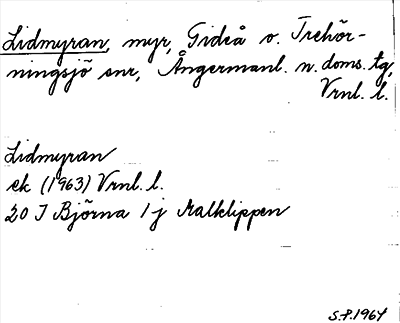 Lidmyran, myr, Gideå o. Trehör-
ningsjö snr, Ångermanl. n. doms. tg,
Vrnl. l.
Lidmyran
ek (1963) Vrnl. l.
20 I Björna 1 j Malklippen
S.P. 1964